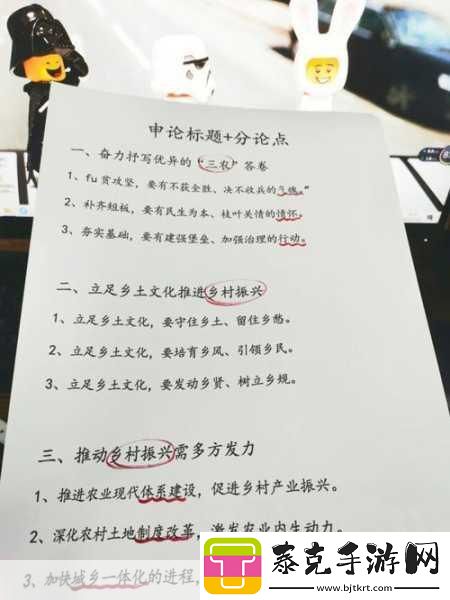 申论标题+分论点
一、奋力抒写优异的“三农”答卷
1、fu贫攻坚，要有不获全胜、决不收兵的气魄。”
2、补齐短板，要有民生为本、枝叶关情的情怀。
3、夯实基础，要有建强堡垒、加强治理的行动。
二、立足乡土文化推进乡村振兴
1、立足乡土文化，要守住乡土、留住乡愁。
2、立足乡土文化，要培育乡风、引领乡民。
3、立足乡土文化，要发动乡贤、树立乡规。
三、推动乡村振兴需多方发力
1、推进农业现代体系建设，促进乡村产业振兴。
2、深化农村土地制度改革，激发农业内生动力。
3、加快城乡一体化的进程，
泰克手游网
www.bjtkrt.com